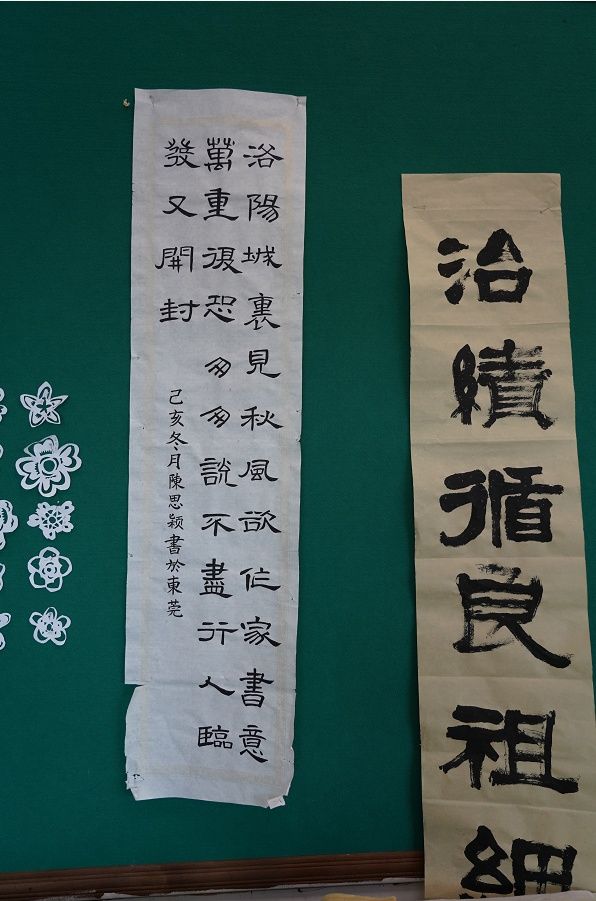 洛陽城裏見秋風欲作家書意
萬重復恐匆匆說不盡行人臨
發又開封
己亥冬月陳思颖書於東莞
治績循良祖細